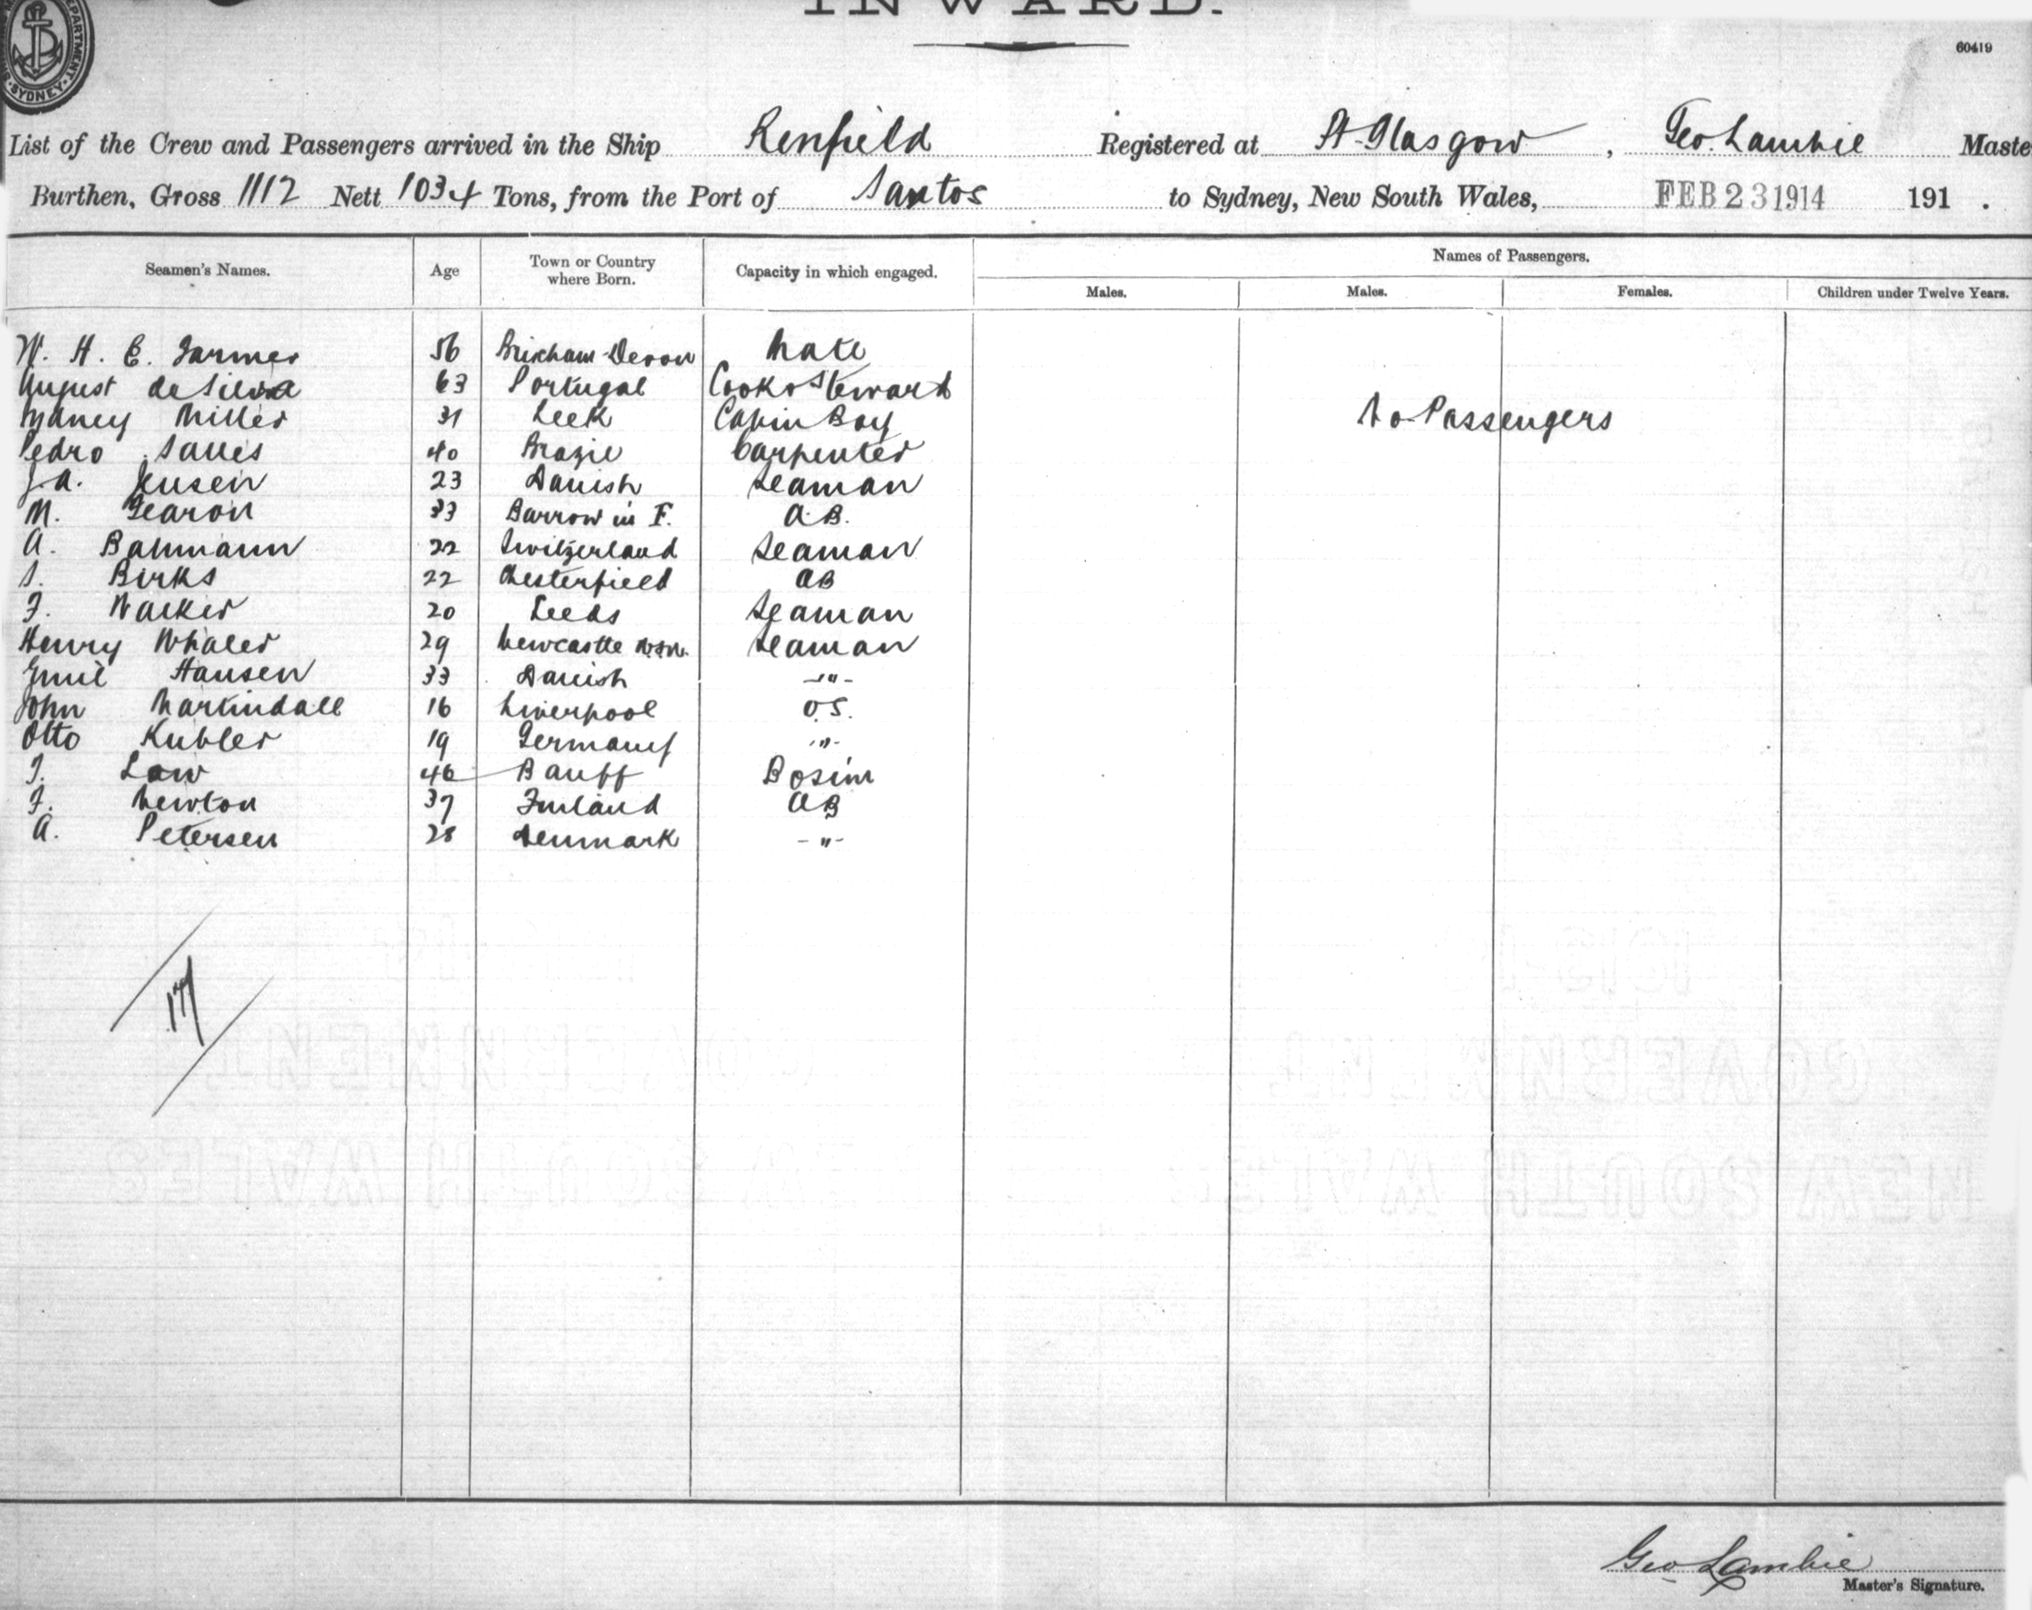 INWARD.
60419
DEPARTMENT
SYDNEY
List of the Crew and Passengers arrived in the Ship Renfield Registered at Pt Glasgow, Geo. Lambie Maste
Burthen, Gross 1112 Nett 1034 Tons, from the Port of Santos to Sydney, New South Wales, FEB 23 1914 191 .
Seamen's Names. Age Town or Country where Born. Capacity in which engaged. Names of Passengers.
Males. Males. Females. Children under Twelve Years.
W. H. E. Farmer 56 Brixham-Devon Mate
August de Silva 63 Portugal Cook & Steward
Sydney Miller 31 Leek Cabin Boy No Passengers
Pedro Salles 40 Brazil Carpenter
J. A. Jensen 23 Danish Seaman
M. Gearon 33 Barrow in F. A.B.
A. Bahmann 22 Switzerland Seaman
S. Birks 22 Chesterfield AB
F. Walker 20 Leeds Seaman
Henry Whaler 29 Newcastle N.S.W. Seaman
Emil Hansen 33 Danish -"-
John Martindall 16 Liverpool O.S.
Otto Kubler 19 Germany -"-
J. Law 46 Banff Bosun
F. Newton 37 Finland AB
A. Petersen 28 Denmark -"-
17
Geo Lambie
Master's Signature.